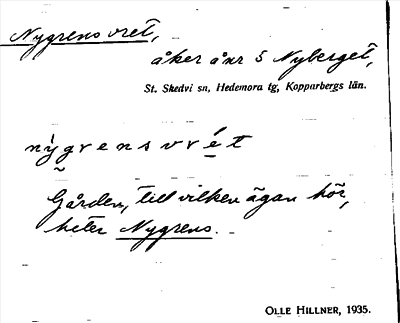 Nygrens vret,
åker å nr 5 Nyberget,
St. Skedvi sn, Hedemora tg, Kopparbergs län.
nỳgrensvrét
Gården, till vilken ägan hör,
heter Nygrens.
OLLE HILLNER, 1935.